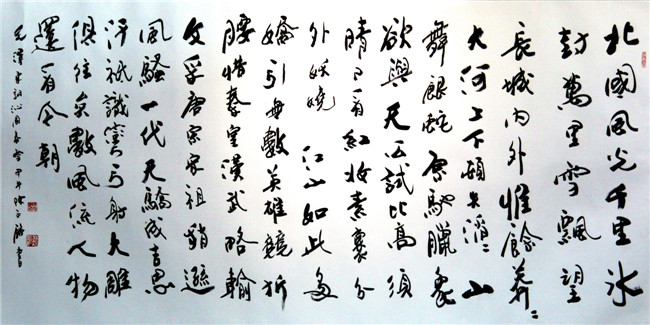 北國風光千里冰
封萬里雪飄望
長城內外惟餘莽〻
大河上下頓失滔〻山
舞銀蛇原馳臘象
欲與天公試比高須
晴日看紅妝素裹分
外妖嬈 江山如此多
嬌引無數英雄競折
腰惜秦皇漢武略輸
文采唐宗宋祖稍遜
風騷一代天驕成吉思
汗祇識彎弓射大雕
俱往矣數風流人物
還看今朝
毛澤東詞沁園春雪甲午 書